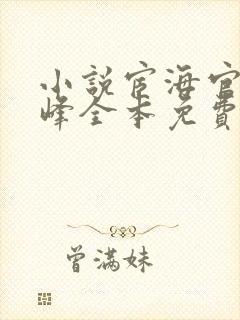 小說宦海官
峰全本免費
曾滿妹